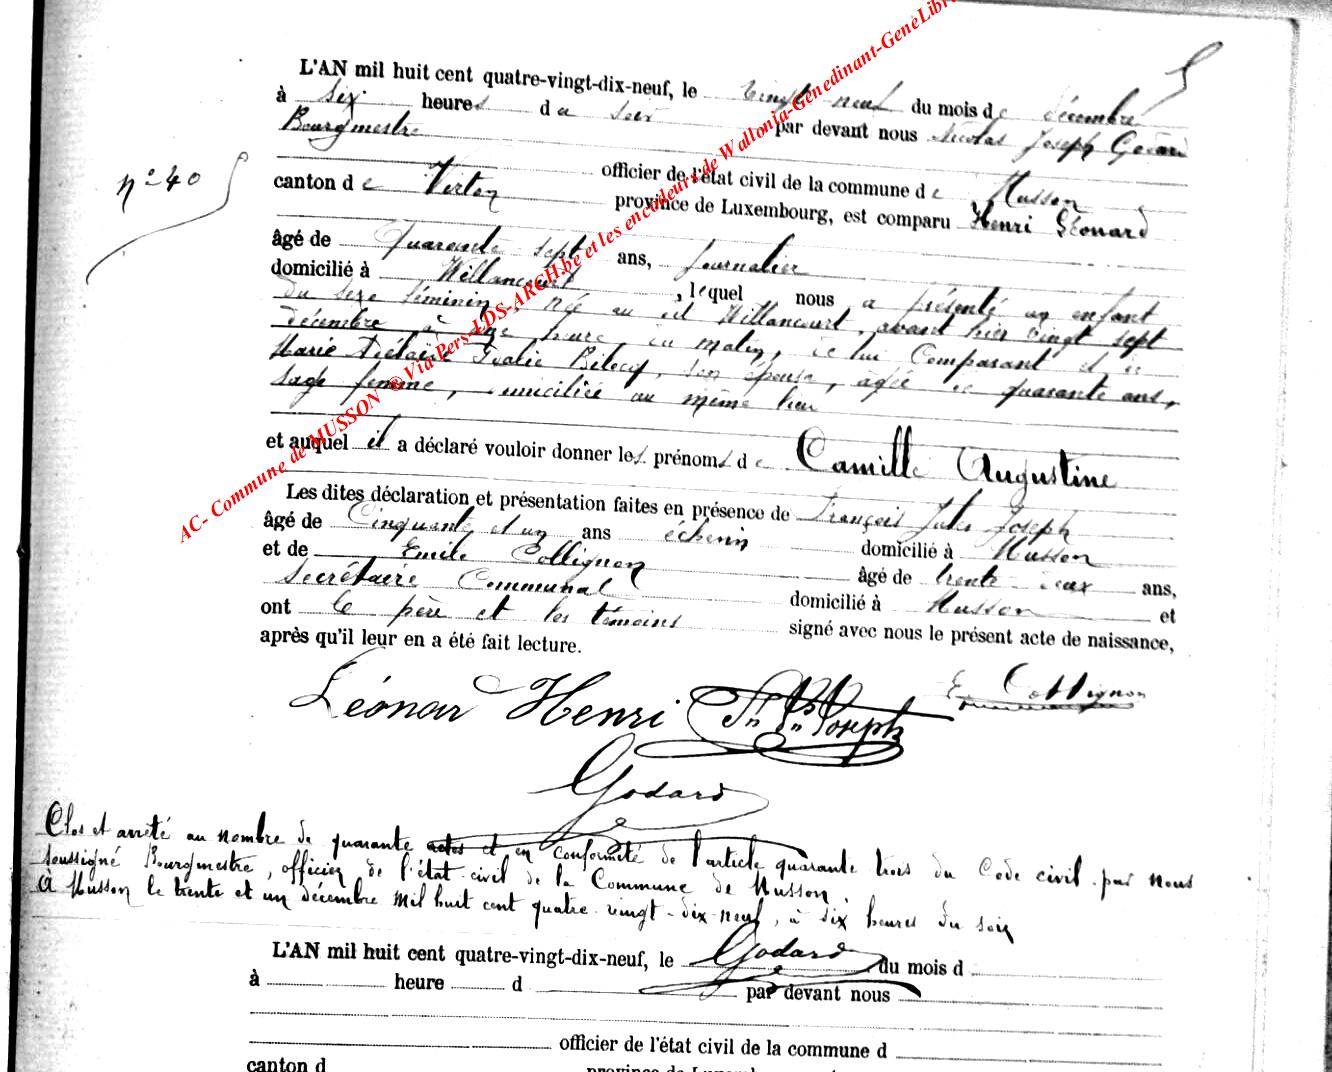 L'AN mil huit cent quatre-vingt-dix-neuf, le vingt-neuf du mois de décembre
à six heures du soir par devant nous Nicolas Joseph Godard
Bourgmestre
n° 40
officier de l'état civil de la commune de Musson
canton de Virton province de Luxembourg, est comparu Henri Léonard
âgé de Quarante sept ans, journalier
domicilié à Willancourt, lequel nous a présenté un enfant
du sexe féminin, née au dit Willancourt, avant hier vingt sept
décembre à une heure du matin, de lui Comparant et de
Marie Adélaïde son épouse, âgée de quarante ans,
sage femme, domiciliée au même lieu
et auquel il a déclaré vouloir donner les prénoms de Camille Augustine
Les dites déclaration et présentation faites en présence de François Jules Joseph
âgé de Cinquante et un ans échevin domicilié à Musson
et de Emile Collignon âgé de trente deux ans,
Secrétaire Communal domicilié à Musson et
ont le père et les témoins signé avec nous le présent acte de naissance,
après qu'il leur en a été fait lecture.
E Collignon
Léonar Henri Joseph
Godard
Clos et arrêté au nombre de quarante actes et en conformité de l'article quarante trois du Code civil par nous
soussigné Bourgmestre, officier de l'état civil de la Commune de Musson.
à Musson le trente et un décembre mil huit cent quatre-vingt-dix-neuf, à six heures du soir
Godard
L'AN mil huit cent quatre-vingt-dix-neuf, le du mois d
à heure d par devant nous
officier de l'état civil de la commune d
canton d province de
AC- Commune de MUSSON ® Via Pers-LDS-ARCH.be et les encodeurs de Wallonia-Genedinant-GenéLibr